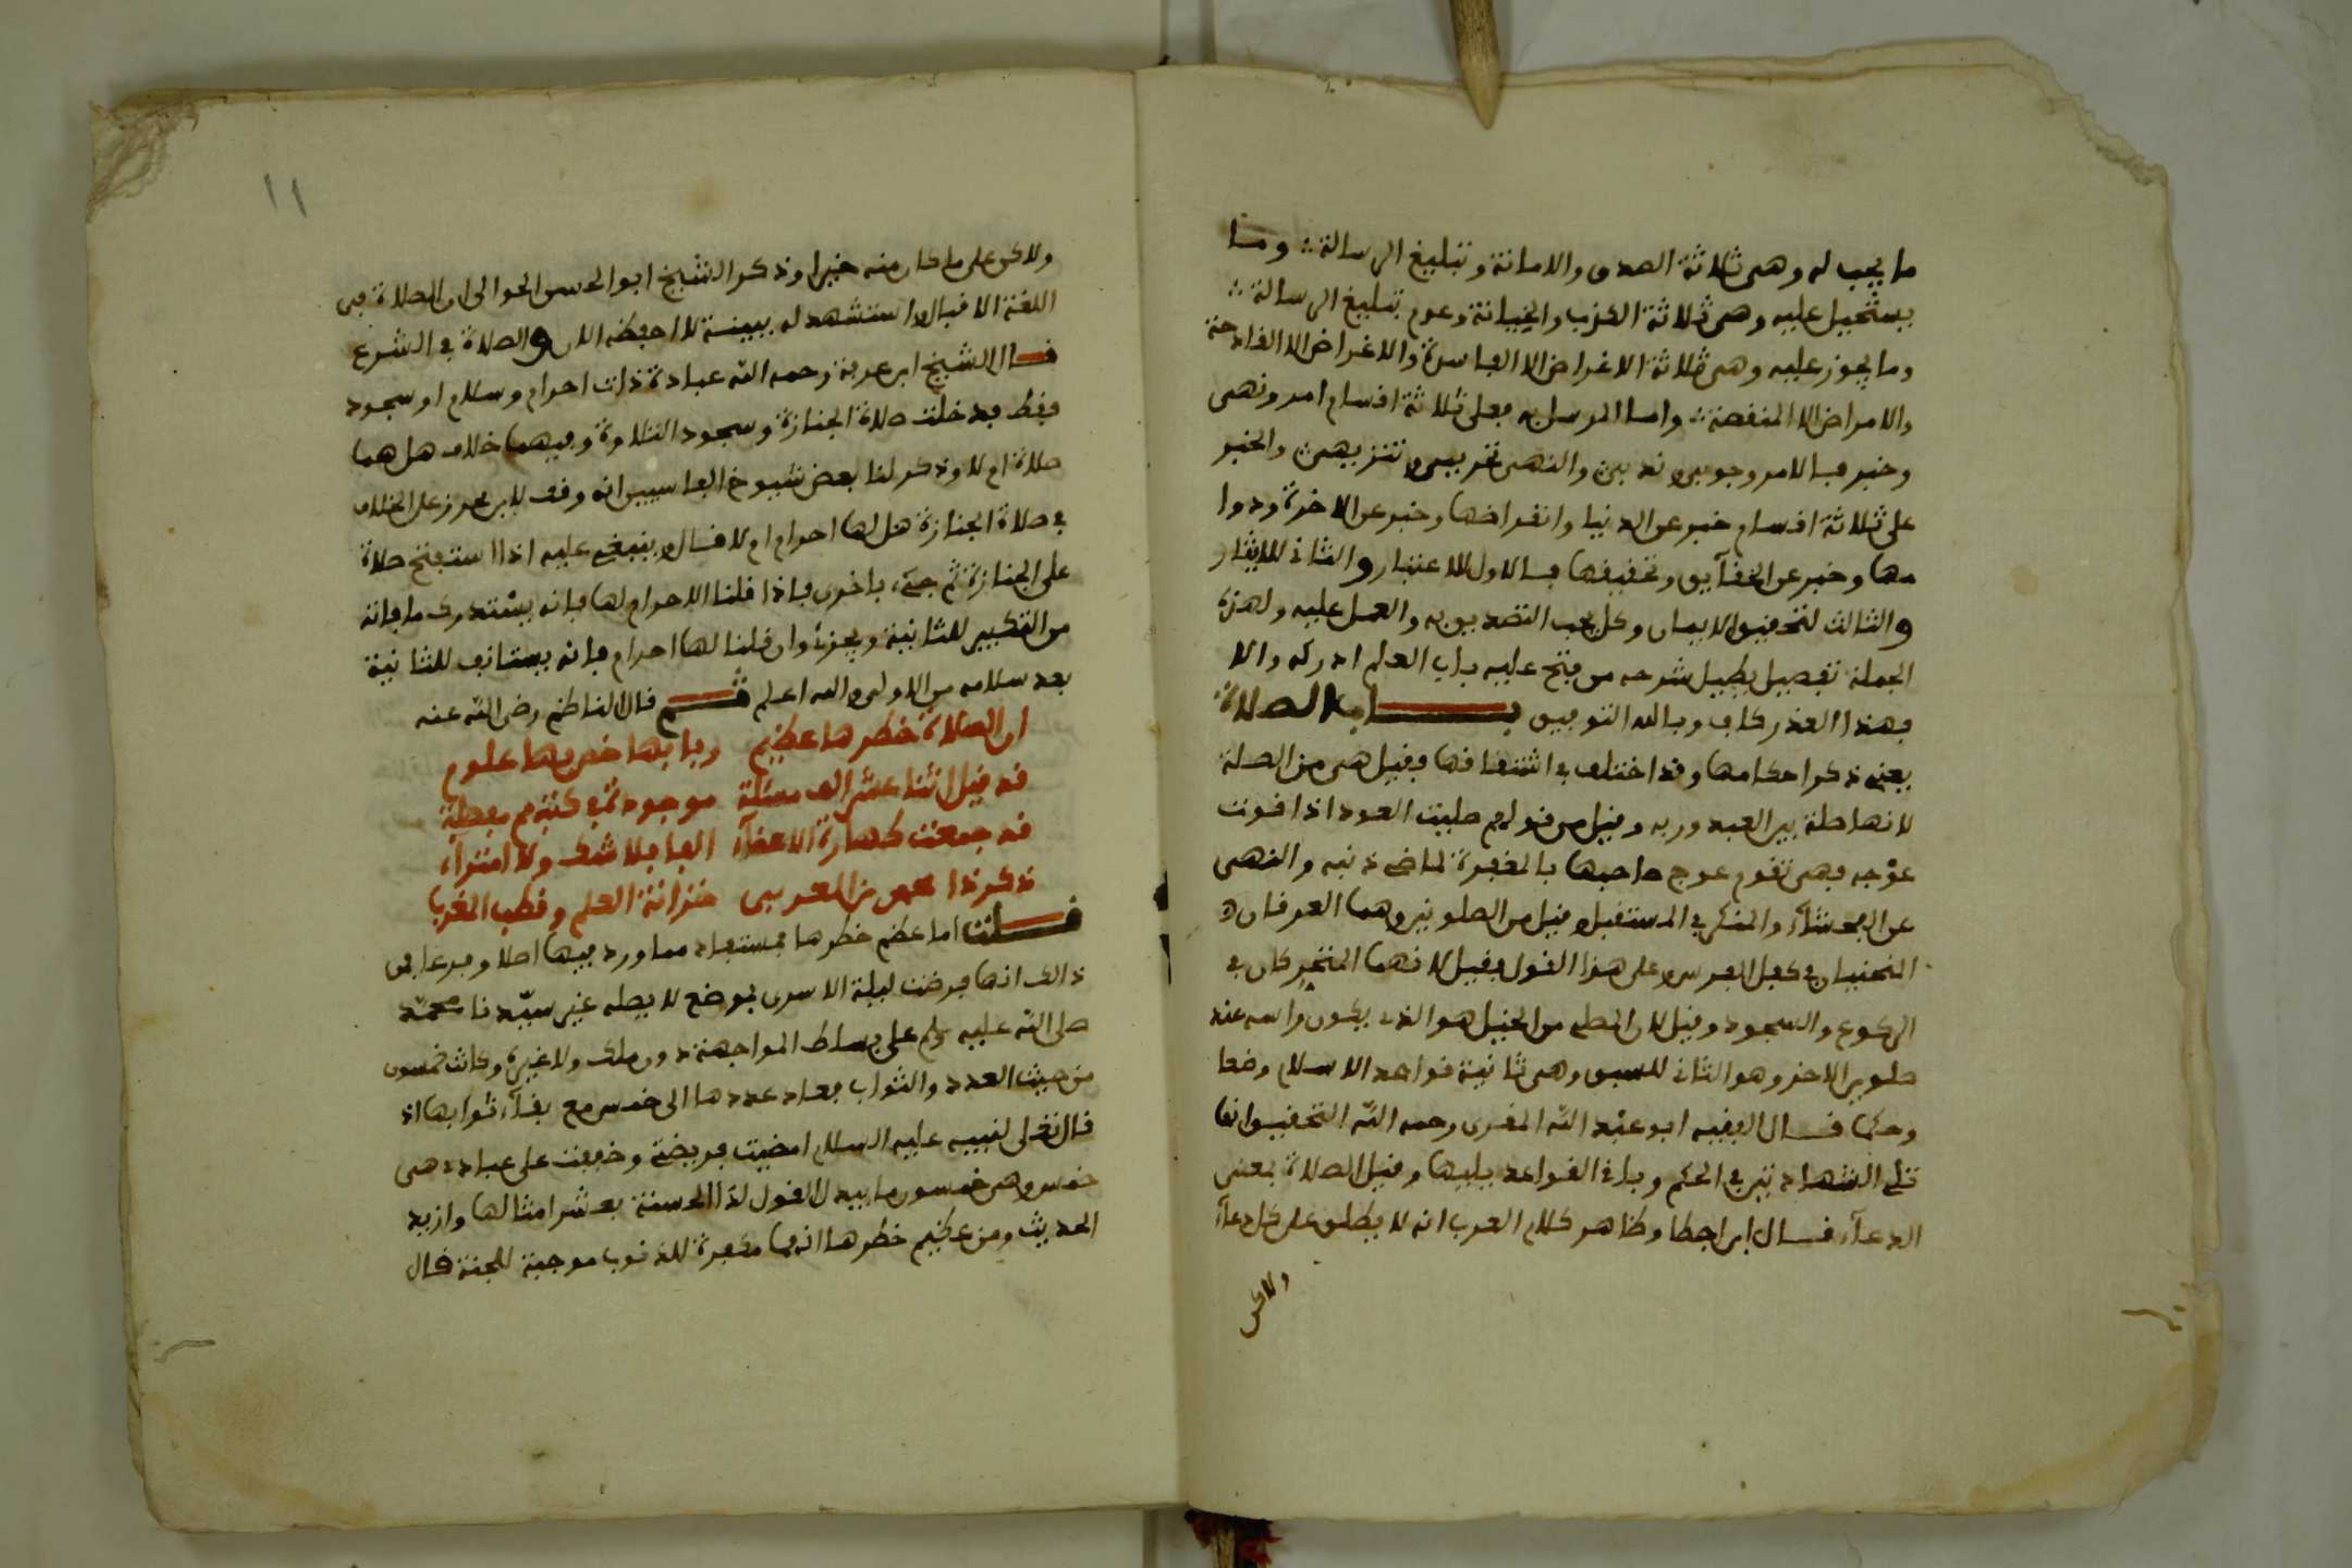 ما يجب له وهى ثلاثة الصدق والامانة وتبليغ الرسالة ؞ وما
يستحيل عليه وهى ثلاثة الكذب والخيانة وعدم تبليغ الرسالة ؞
وما يجوز عليه وهى ثلاثة الاغراض الا الفاسدة والاعراض الا الفادحة
والامراض الا المنقصة ؞ واما المرسل به فعلى ثلاثة اقسام امر ونهى
وخبر فالامر وجوبى وندبى والنهى تحريمى وتنزيهى والخبر
على ثلاثة اقسام خبر عن الدنيا وانقراضها وخبر عن الاخرة ودوا
مها وخبر عن الحقآيق وتحقيقها فالاول للاعتبار والثانى للايثار
والثالث لتحقيق الايمان وكل يجب التصديق به والعمل عليه ولهذه
الجملة تفصيل يطيل شرحه من فتح عليه باب العلم ادركه والا
فهذا القدر كاف وبالله التوفيق بـــاب الصلاة
يعنى ذكر احكامها وقد اختلف فى اشتقاقها فقيل هى من الصلة
لانها صلة بين العبد وربه وقيل من قولهم صليت العود اذا قومت
عوجه فهى تقوم عوج صاحبها بالمغفرة لماضى ذنبه والنهى
عن الفحشآء والمنكر فى المستقبل وقيل من الصلوين وهما العرقان
المنحنيان فى كفل الفرس وعلى هذا القول فقيل لانهما المتحركان فى
الركوع والسجود وقيل لان المصلى من الخيل هو الذى يكون راسه عند
صلوى الاخر وهو الثانى للسبق وهى ثانية قواعد الاسلام وضعا
وحكما قال الفقيه ابو عبد الله المقرى رحمه الله التحقيق انها
تلى الشهادتين فى الحكم وباقى القواعد يليها وقيل الصلاة بمعنى
الدعآء قال ابن اجطا وظاهر كلام العرب انه لا يطلق على كل دعآء
ولاكن
١١
ولاكن على ما كان منه خيرا وذكر الشيخ ابو الحسن الحوالى ان الصلاة فى
اللغة الاقبال واستشهد له ببينة لا احفظه الان والصلاة فى الشرع
قال الشيخ ابن عرفة رحمه الله عبادة ذات احرام وسلام او سجود
فقط فدخلت صلاة الجنازة وسجود التلاوة وفيهما خلاف هل هما
صلاة ام لا وذكر لنا بعض شيوخ الفاسيين انه وقف لابن محرز على الخلاف
فى صلاة الجنازة هل لها احرام ام لا قال وينبغى عليه اذا استفتح صلاة
على الجنازة ثم جىء باخرى فاذا قلنا لا احرام لها فانه يستدرك ما فاته
من التكبير للثانية ويجزئ وان قلنا لها احرام فانه يستانف للثانية
بعد سلامه من الاولى والله اعلم ثـــم قال الناظم رضى الله عنه
ان الصلاة خطرها عظيم وبابها خص بها علوم
قد قيل اثنا عشر الف مسئلة موجودة فى كتبهم مفصلة
قد جمعت طهارة الاعضآء الفا بلا شك ولا امترآء
ذكر ذا محمد بن العربى خزانة العلم وقطب المغرب
قـــلت اما عظم خطرها فمستفاد مما ورد فيها اصلا وفرعا فى
ذالك انها فرضت ليلة الاسرى بموضع لا يصله غير سيدنا محمد
صلى الله عليه وسلم على بساط المواجهة دون ملك ولا غيره وكانت خمسون
من حيث العدد والثواب فعاد عددها الى خمس مع بقآء ثوابها اذ
قال تعلى لنبيه عليه السلام امضيت فريضتى وخففت على عبادى هى
خمس وهى خمسون ما يبدل القول لدى الحسنة بعشر امثالها وازيد
الحديث ومن عظيم خطرها انها مكفرة للذنوب موجبة للجنة قال